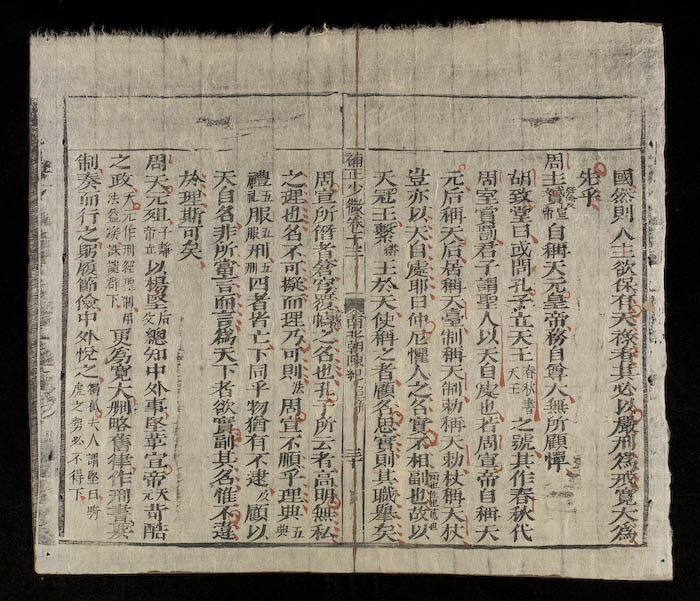 國然則人主欲保有天祿者其必以嚴刑爲戒寬大爲
先乎
周主贇宣帝自稱天元皇帝務自尊大無所顧憚
胡致堂曰或問孔子立天王春秋書天王之號其作春秋代
周室賞罰君子謂聖人以天自處也若周宣帝自稱天
元后稱天后居稱天臺制稱天制勅稱天勅杖稱天杖
豈亦以天自處耶曰仲尼懼人之名實不相副也故以
天冠王繫王於天使稱之者顧名思實則其職舉矣
補正少微卷二十三 南北朝陳紀 三十
周宣所僭者蒼穹覆幬之名也孔子所云者高明無私
之理也名不可擬而理乃可則法周宣不順乎理典五典
禮五禮服五服刑五刑四者皆亡下同乎物猶有不逮及顧以
天自名非所當言而言爲天下者欲實副其名惟不違
於理斯可矣
周天元殂子靜帝立以楊堅后父總知中外事堅革宣帝天元苛酷
之政天元作刑經聖制用法益深誅譴群下更爲寬大刪略舊律作刑書要
制奏而行之躬履節儉中外悅之獨孤夫人謂堅曰騎虎之勢必不得下